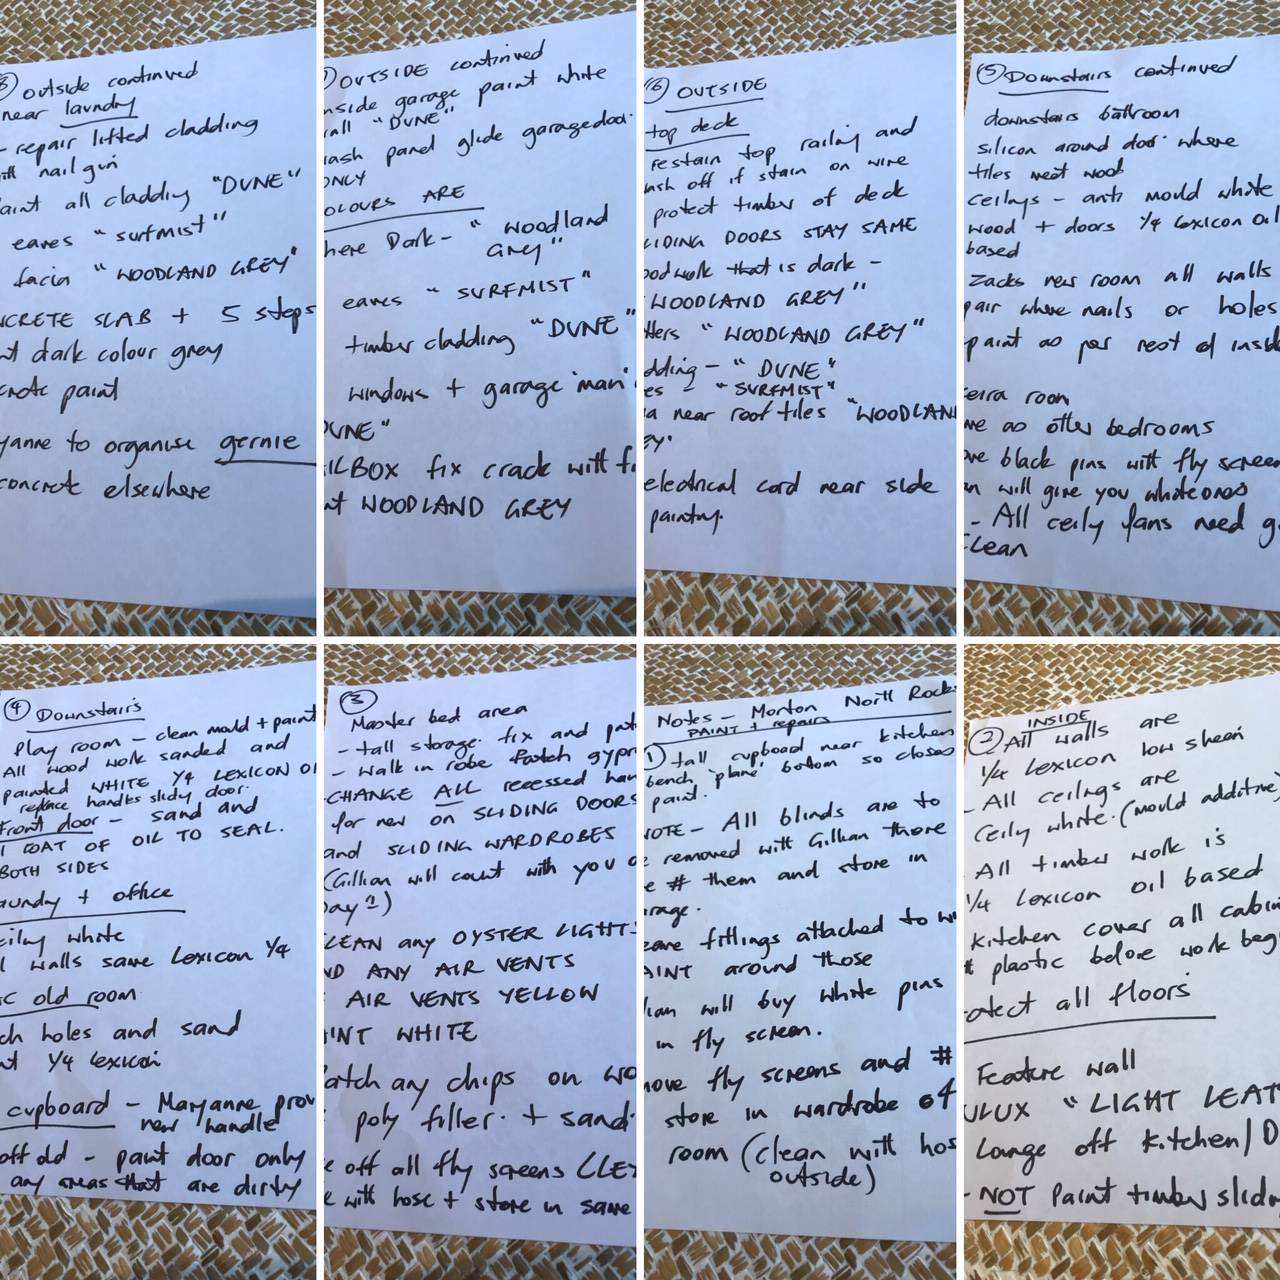 8 outside continued
near laundry
- repair lifted cladding
nail gun
all cladding "DUNE"
eaves "surfmist"
facia "WOODLAND GREY"
SLAB + 5 steps
dark colour grey
paint
to organise gernie
concrete elsewhere
OUTSIDE continued
garage paint white
"DUNE"
panel glide garagedoor
ONLY
ARE
Dark - "Woodland
Grey"
eaves "SURFMIST"
timber cladding "DUNE"
windows + garage 'man'
fix crack with
WOODLAND GREY
6 OUTSIDE
top deck
restain top railing and
off if stain on wire
protect timber of deck
DOORS STAY SAME
that is dark -
WOODLAND GREY"
"WOODLAND GREY"
- "DUNE"
- "SURFMIST"
near roof tiles "WOODLAN
electrical cord near side
painting.
5 Downstairs continued
downstairs bathroom
silicon around door where
tiles meet wood
ceilings - anti mould white
wood + doors 1/4 Lexicon oil
based
Zacks new room all walls
where nails or holes
paint as per rest of
room
as other bedrooms
black pins with fly screen
will give you white ones
- All ceiling fans need
clean
4 Downstairs
Play room - clean mould + paint
All wood work sanded and
painted WHITE 1/4 LEXICON
replace handles sliding door.
Front door - sand and
1 COAT OF OIL TO SEAL.
BOTH SIDES
+ office
white
walls same Lexicon 1/4
old room
holes and sand
1/4 Lexicon
cupboard - Maryanne prov
new handle
off old - paint door only
any areas that are dirty
3
Master bed area
- tall storage. fix and
- walk in robe Patch
CHANGE ALL recessed
for new on SLIDING DOORS
and SLIDING WARDROBES
(Gillian will count with you
Day 1)
CLEAN any OYSTER LIGHTS
ANY AIR VENTS
AIR VENTS YELLOW
WHITE
any chips on
poly filler. + sand
off all fly screens
with hose + store in same
Notes - Morton North Rocks
PAINT + repairs
1 tall cupboard near kitchen
bench 'plane' bottom so closes
paint.
NOTE - All blinds are to
removed with Gillian there
# them and store in
fittings attached to
around those
will buy white pins
in fly screen.
fly screens and #
store in wardrobe of
room (clean with
outside)
INSIDE
2 All walls are
1/4 Lexicon low sheen
- All ceilings are
Ceiling white. (mould additive)
- All timber work is
1/4 Lexicon oil based
kitchen cover all
plastic before work
all floors
Feature wall
"LIGHT
Lounge off kitchen/
- NOT Paint timber